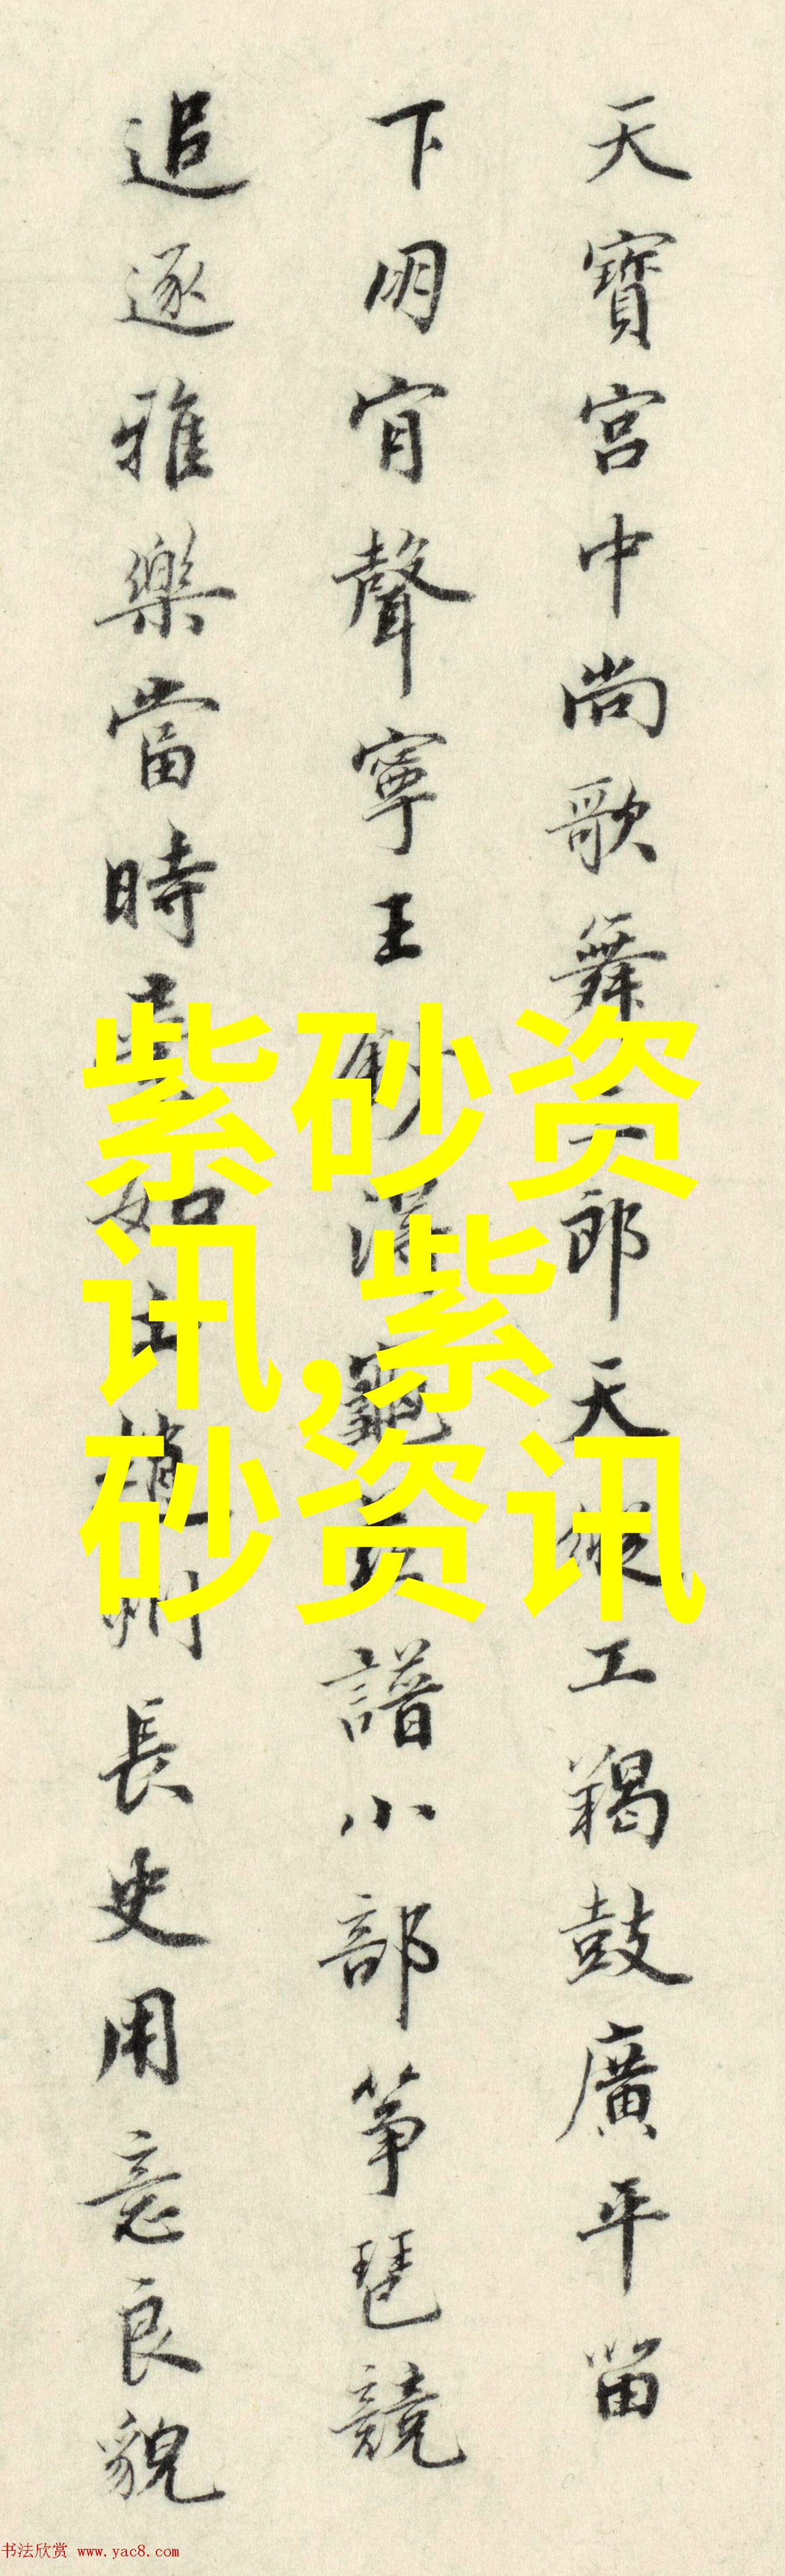 天寶宮中尚歌舞三郎天縱工羯鼓廣平留
下明宵聲寧王妙
譜小部箏琶競
追逐雅樂當時
如
長史用意良貌
紫砂资
讯,紫
砂资讯
书法欣赏 www.yac8.com